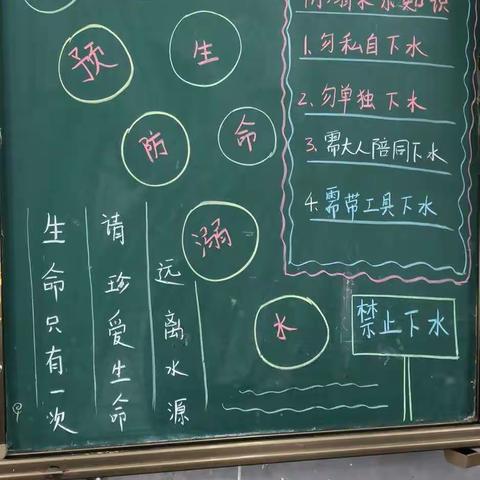 预
防
溺
水
生
命
防溺水知识
1.勿私自下水
2.勿单独下水
3.需大人陪同下水
4.需带工具下水
禁止下水
远离水源
请珍爱生命
生命只有一次